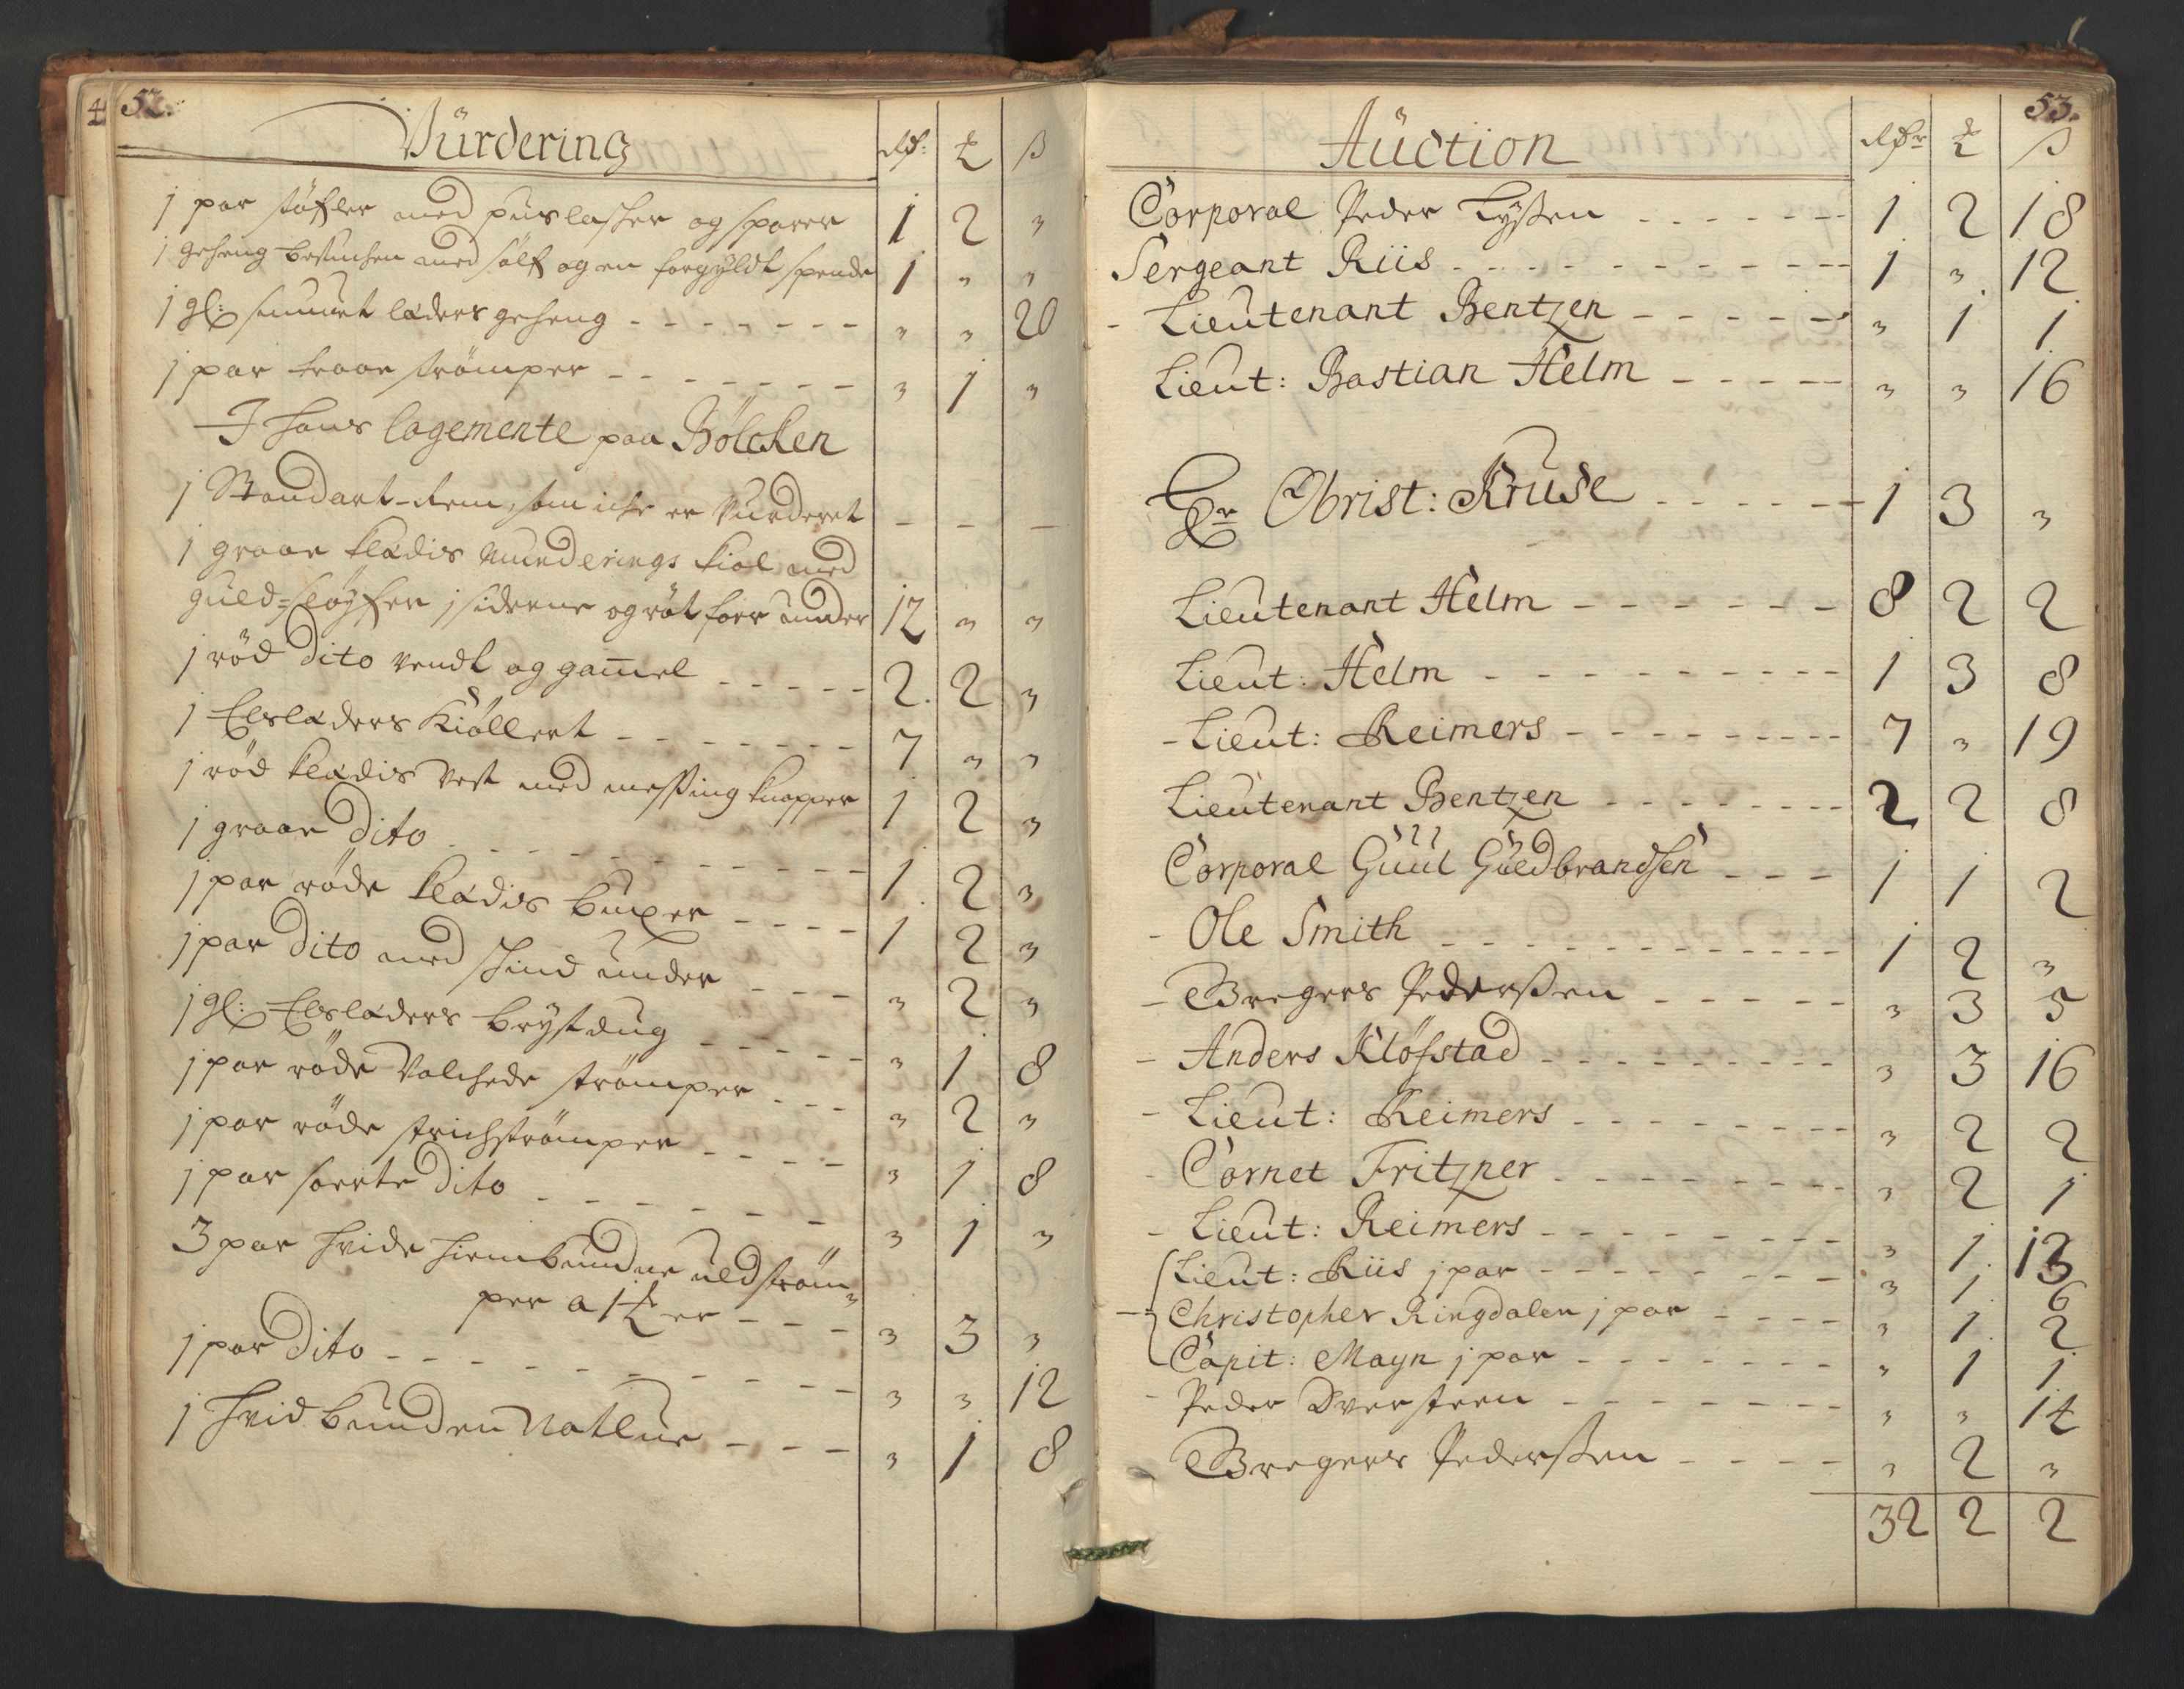 4 52.
Vürdering Rdr: ƶ ß
j par støfler med pürlasker og sporer 1 2 "
j geheng beslunhen med sølf og en forgÿldt spende 1 " "
j gl: smuurt læders geheng - - - - - - - " " 20
j par traae strømper - - - - - - - " 1 "
I hans logemente paa Bölcken
j Standart-rem, som iche er Vurderet - - -
j graae klædis Munderings kiol med
guld-sløÿfer j siderne og røt foer under 12 " "
j rød Dito vendt og gam̄el - - - - - 2 2 "
j Elslæders Kiøllert - - - - - - - 7 " "
j rød klædis vest med messing knapper 1 2 "
j graae Dito - - - - - - - - 1 2 "
j par røde klædis buxer - - - - 1 2 "
j par Dito med skind under - - - " 2 "
j gl: Elslæders brÿstdug - - - - - " 1 8
j par røde Valchede strømper - - - " 2 "
j par røde strichstrømper - - - - " 1 8
j par sorte Dito - - - - - - " 1 "
3 par hvide hiembundne uldstrøm=
per a 1 ƶ er - - - " 3 "
j par Dito - - - - - - - - - " " 12
j hvid bunden Natlue - - - " 1 8
53.
Aüction Rdr ƶ ß
Corporal Peder Tÿßen - - - - - - 1 2 18
Sergeant Riis - - - - - - - - - 1 " 12
- Lieutenant Bentzen - - - - - " 1 1
Lieut: Bastian Helm - - - - - " " 16
Hr Obrist: Kruse - - - - - 1 3 "
Lieutenant Helm - - - - - - 8 2 2
Lieut: Helm - - - - - - - - - 1 3 8
- Lieut: Reimers - - - - - - - - - 7 " 19
Lieutenant Bentzen - - - - - - - - 2 2 8
Corporal Guul Guldbrandsen - - - 1 1 2
- Ole Smith - - - - - - - - - - - 1 2 "
- Bregers Pederßen - - - - - " 3 5
- Anders Kløfstad - - - - - - - - - " 3 16
- Lieut: Reimers - - - - - - - - " 2 2
- Cornet Fritzner - - - - - - - - - " 2 1
- Lieut: Reimers - - - - - - - - - " 1 13
Lieut: Riis j par - - - - - - - - " 1 6
- Christopher Ringdalen j par - - - - " 1 2
Capit: Mayn j par - - - - - - - " 1 1
- Peder Dversteen - - - - - - - " " 14
Bregers Pederßen - - - - - " 2 "
32 2 2